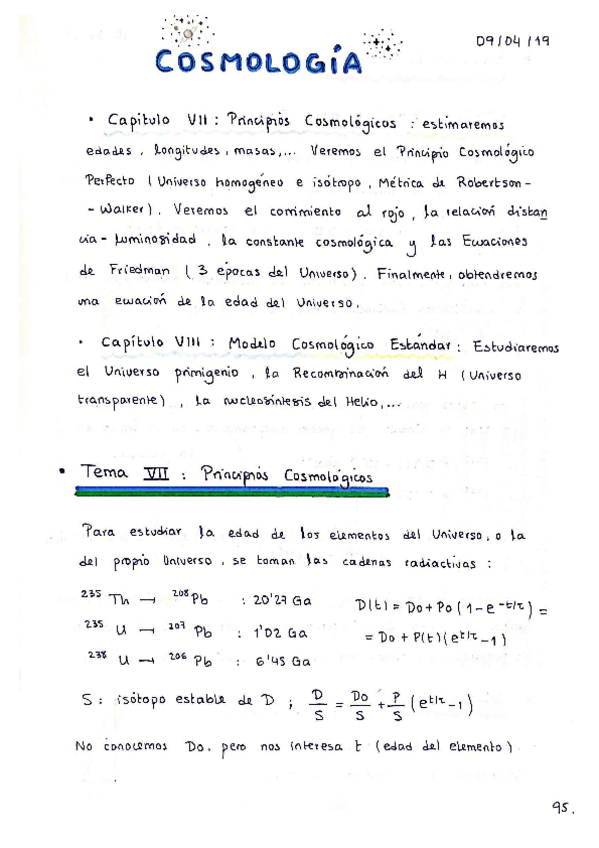 09/04/19
COSMOLOGÍA
• Capítulo VII : Principios Cosmológicos : estimaremos
edades, longitudes, masas,... Veremos el Principio Cosmológico
Perfecto (Universo homogéneo e isótropo, Métrica de Robertson-
-Walker). Veremos el corrimiento al rojo, la relación distan
cia-luminosidad, la constante cosmológica y las Ecuaciones
de Friedman (3 épocas del Universo). Finalmente, obtendremos
una ecuación de la edad del Universo.
• Capítulo VIII : Modelo Cosmológico Estándar : Estudiaremos
el Universo primigenio, la Recombinación del H (Universo
transparente), la nucleosíntesis del Helio,...
• Tema VII : Principios Cosmológicos
Para estudiar la edad de los elementos del Universo, o la
del propio Universo, se toman las cadenas radiactivas :
²³⁵Th → ²⁰⁸Pb : 20'27 Ga D(t) = D₀ + P₀(1-e^(-t/τ)) =
²³⁵U → ²⁰⁷Pb : 1'02 Ga = D₀ + P(t)(e^(t/τ)-1)
²³⁸U → ²⁰⁶Pb : 6'45 Ga
S : isótopo estable de D ; D/S = D₀/S + P/S (e^(t/τ)-1)
No conocemos D₀, pero nos interesa t (edad del elemento)
95.